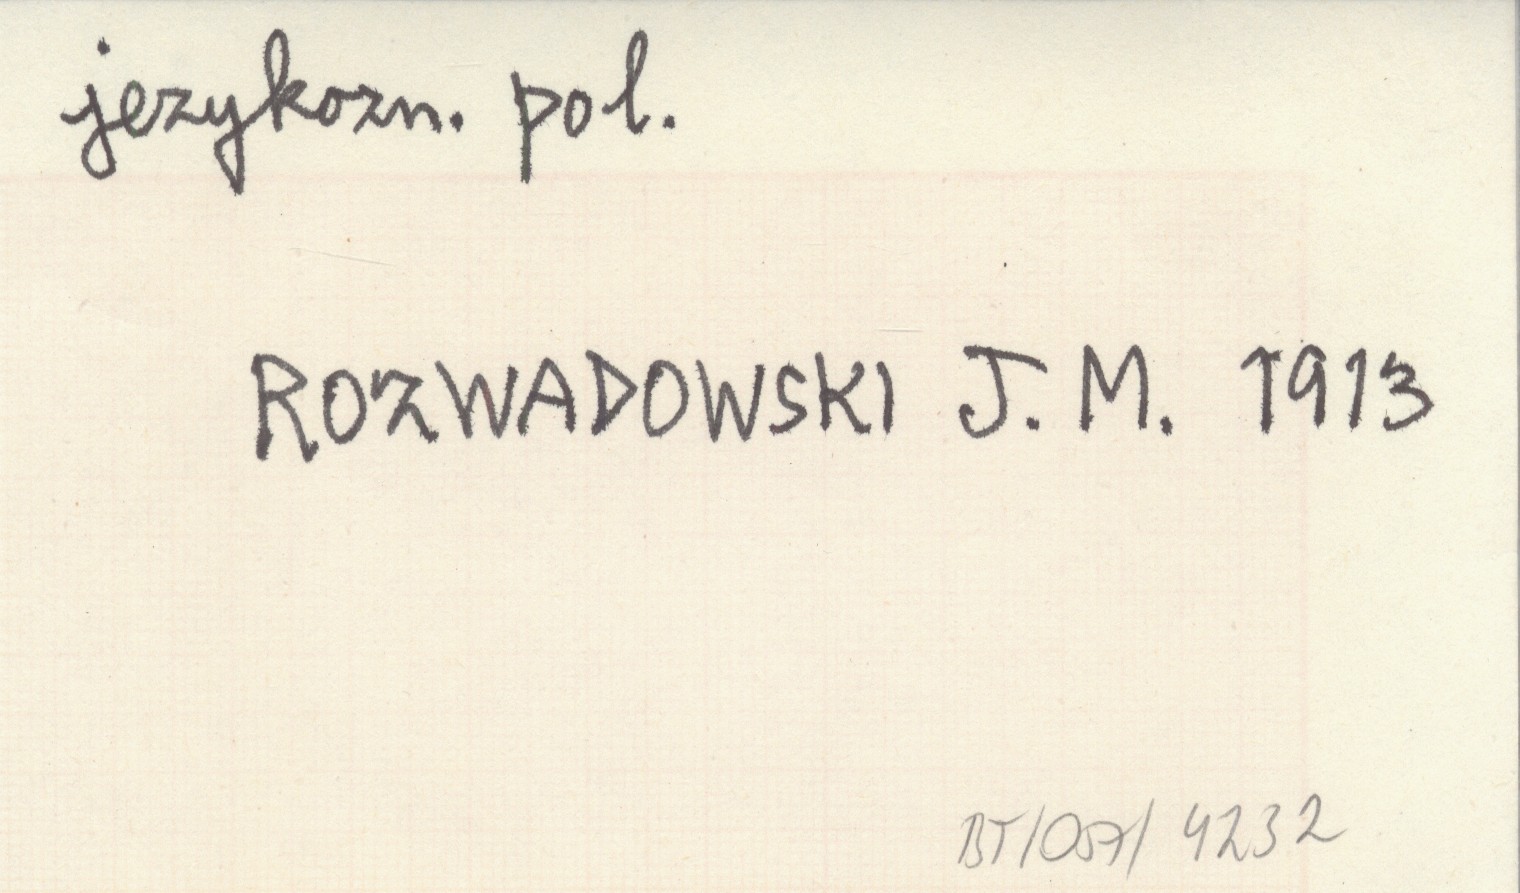 jezykozn. pol.
ROZWADOWSKI J. M. 1913
BT/057/4232